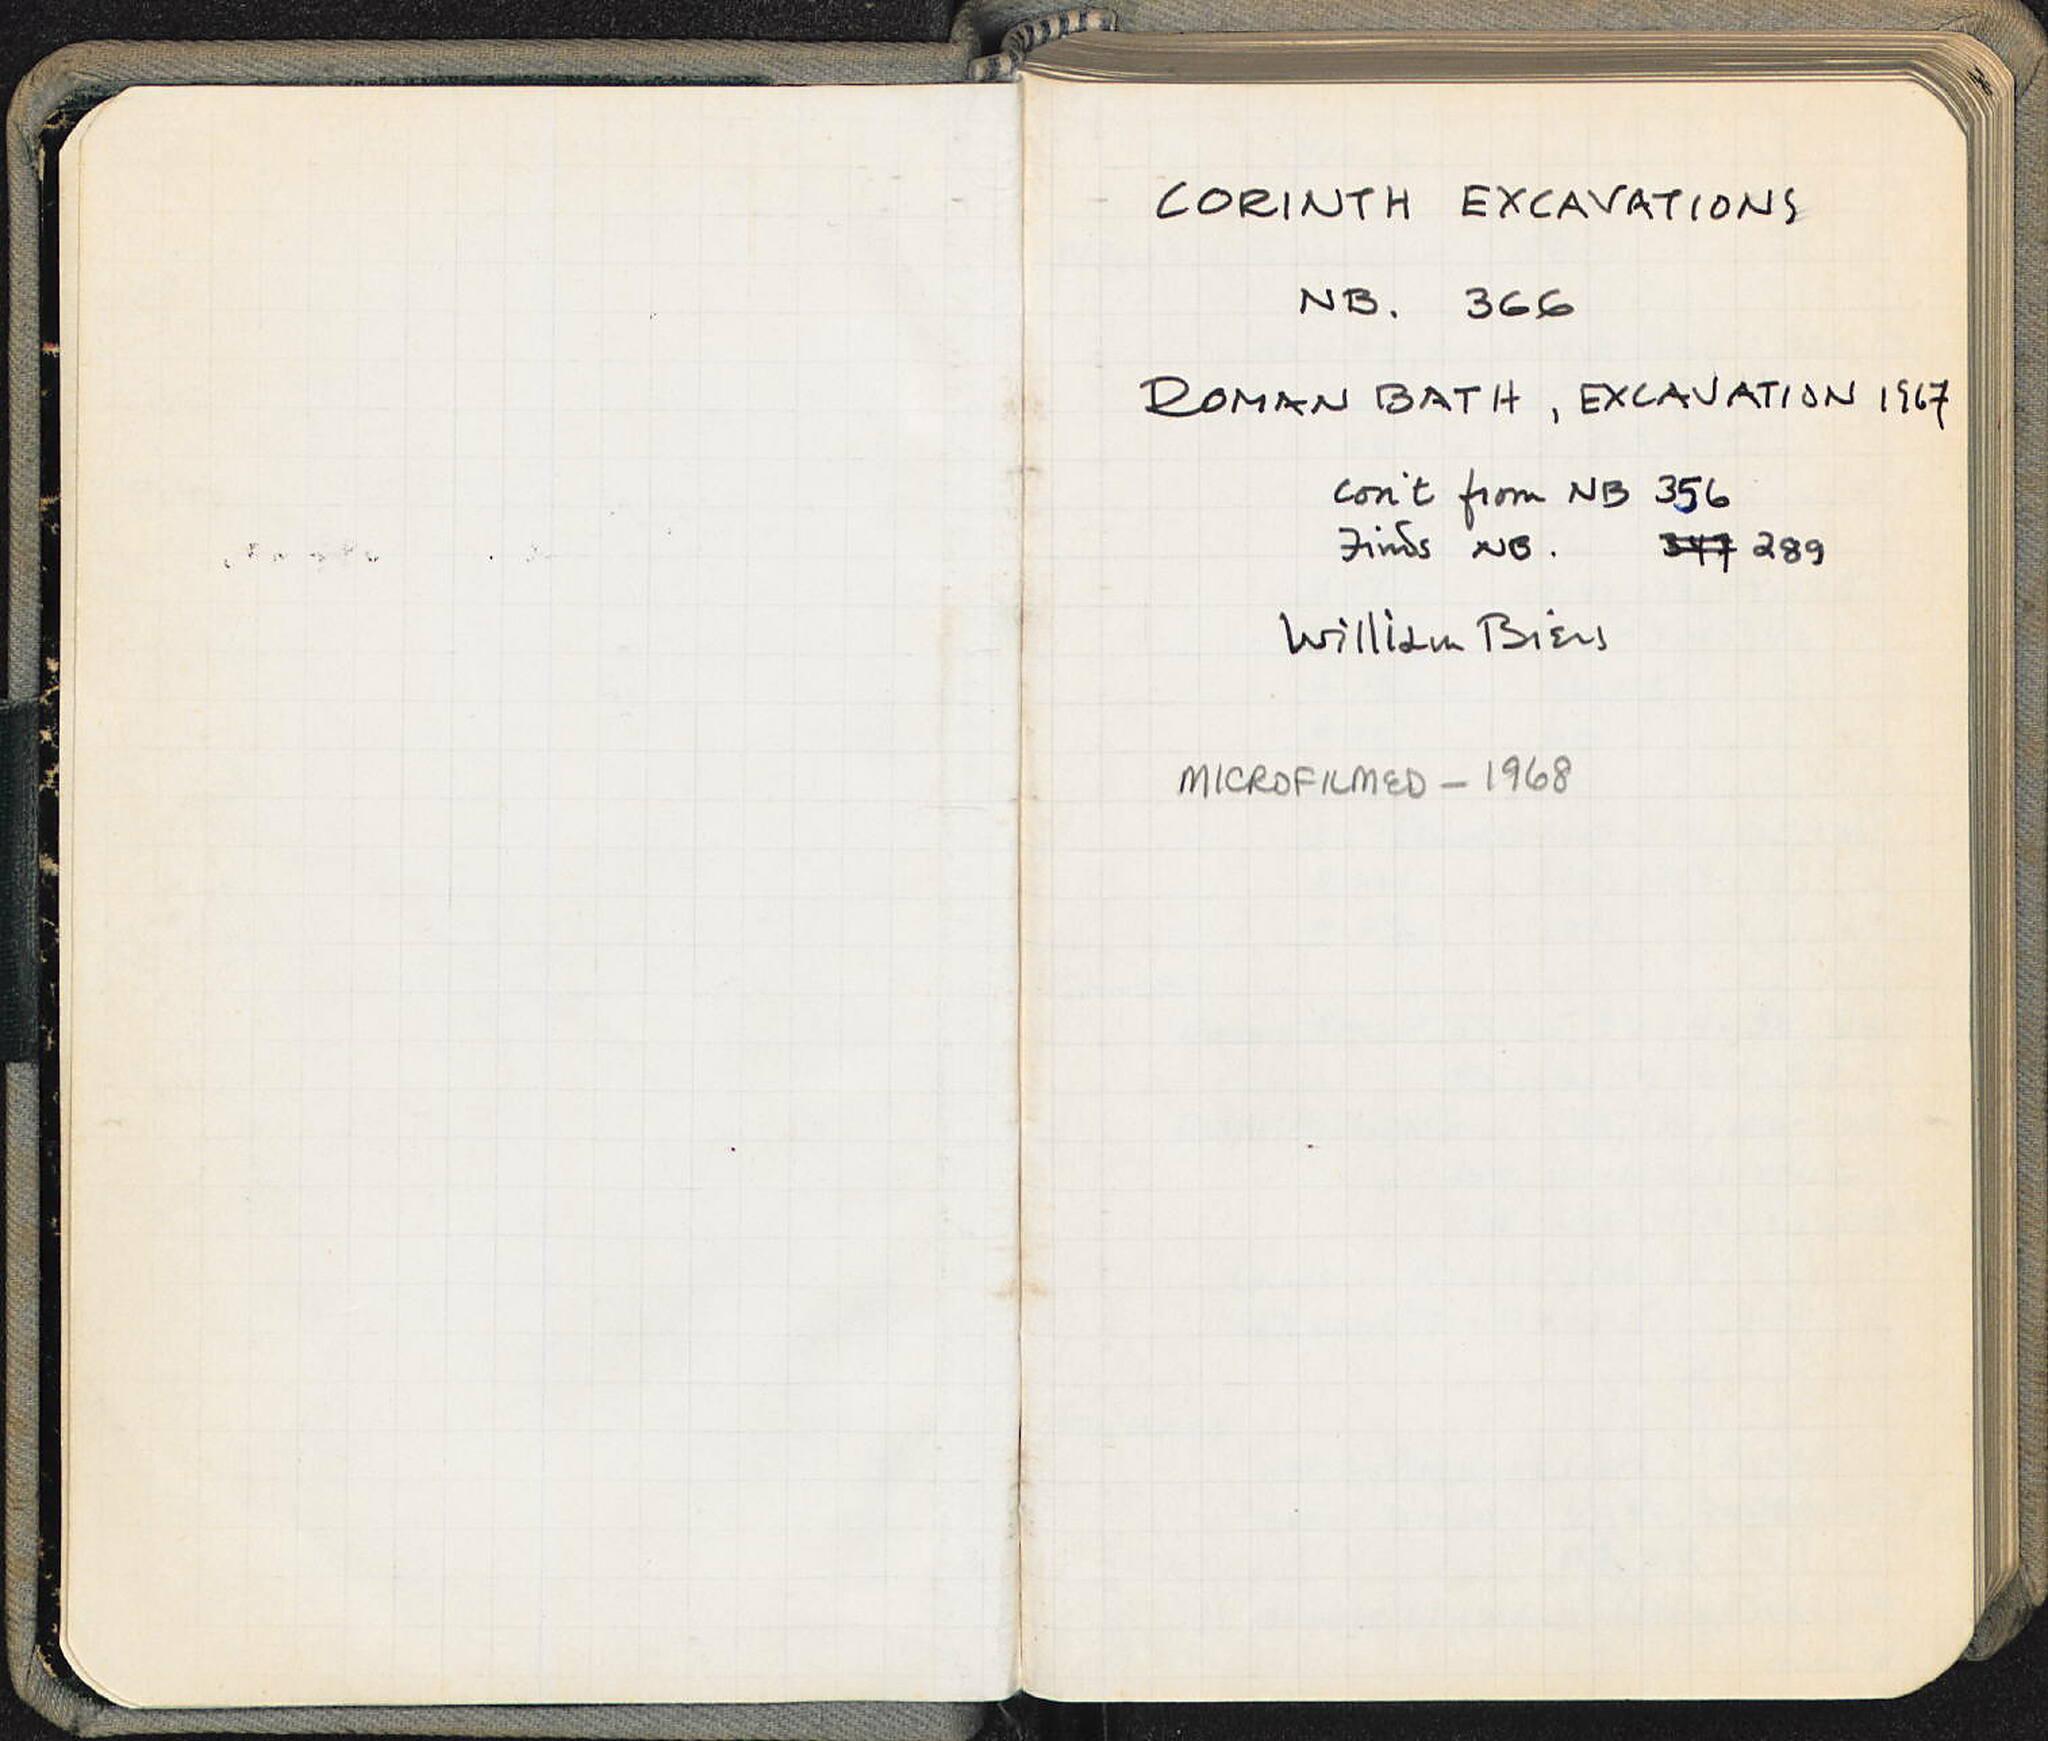 CORINTH EXCAVATIONS
NB. 366
ROMAN BATH, EXCAVATION 1967
con't from NB 356
Finds NB. 347 289
William Biers
MICROFILMED - 1968